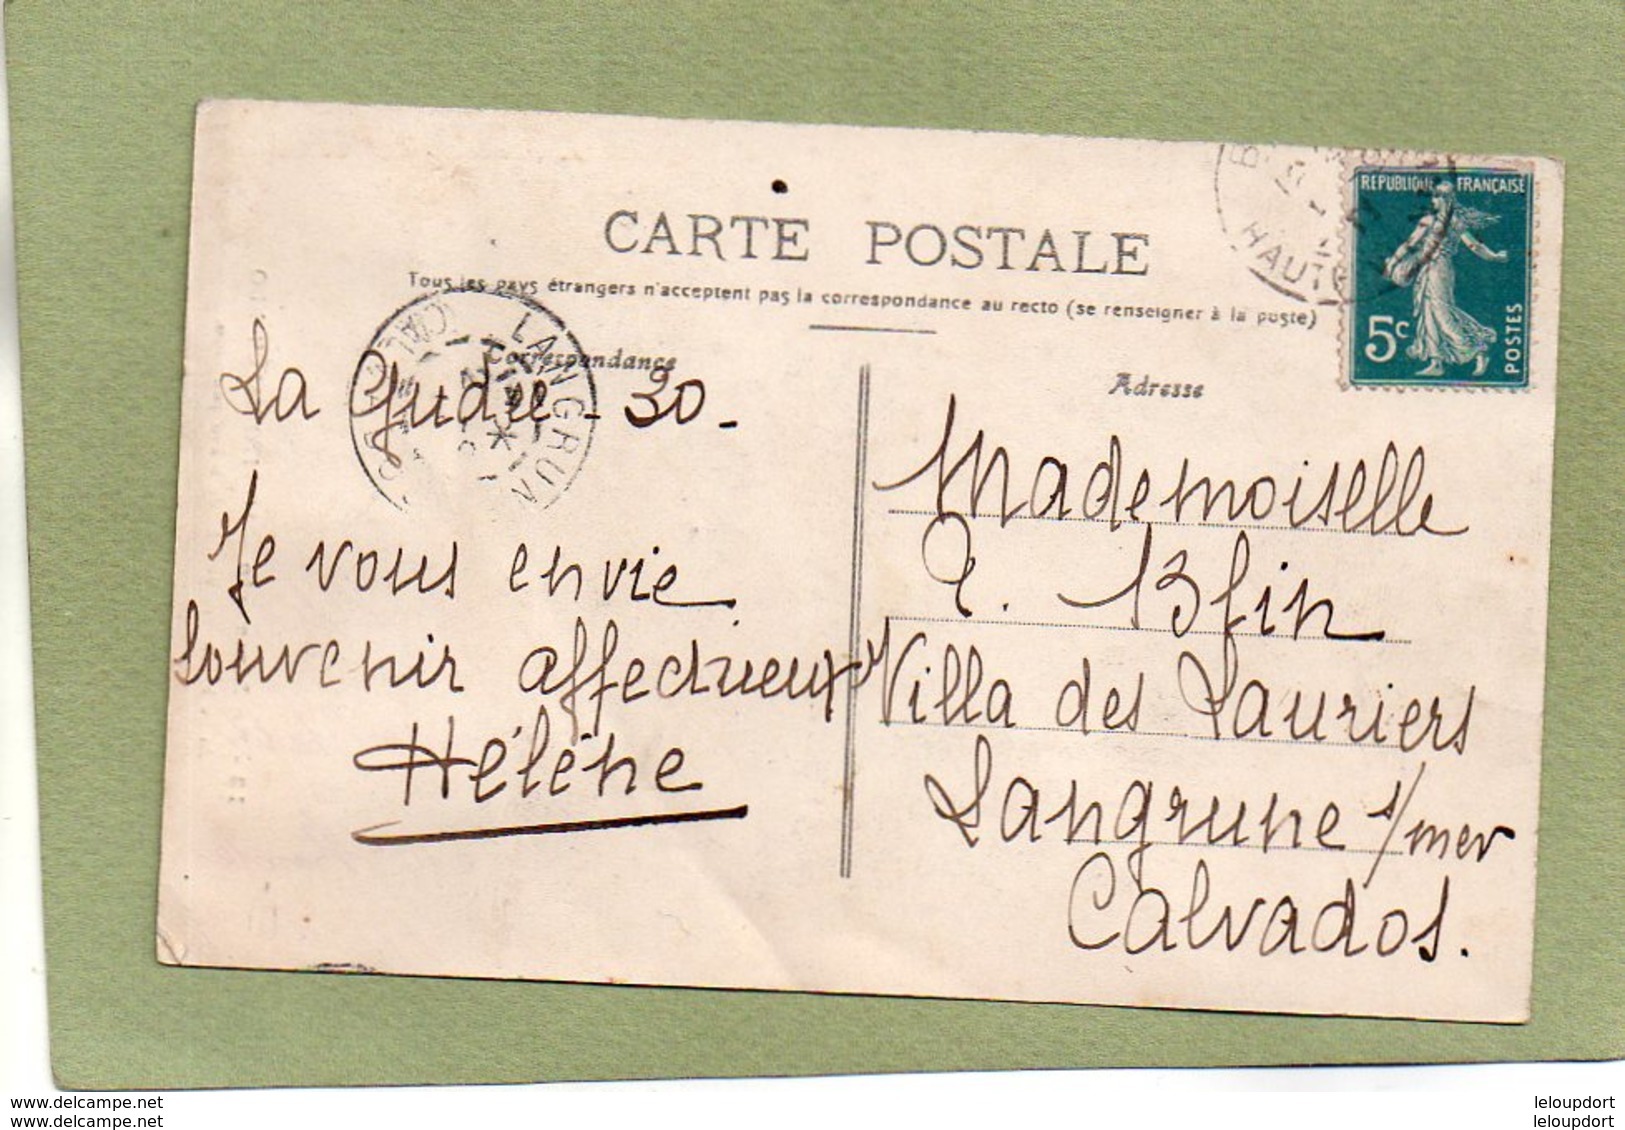 CARTE POSTALE
Tous les pays étrangers n'acceptent pas la correspondance au recto (se renseigner à la poste)
Correspondance
La Gudie - 30 -
Je vous envie
souvenir affectueux
Hélène
Adresse
Mademoiselle
Blfin
Villa des Lauriers
Langrune s/mer
Calvados.
REPUBLIQUE FRANÇAISE
5c
POSTES
LANGRUN
CAL
HAUTE
www.delcampe.net
www.delcampe.net
leloupdort
leloupdort